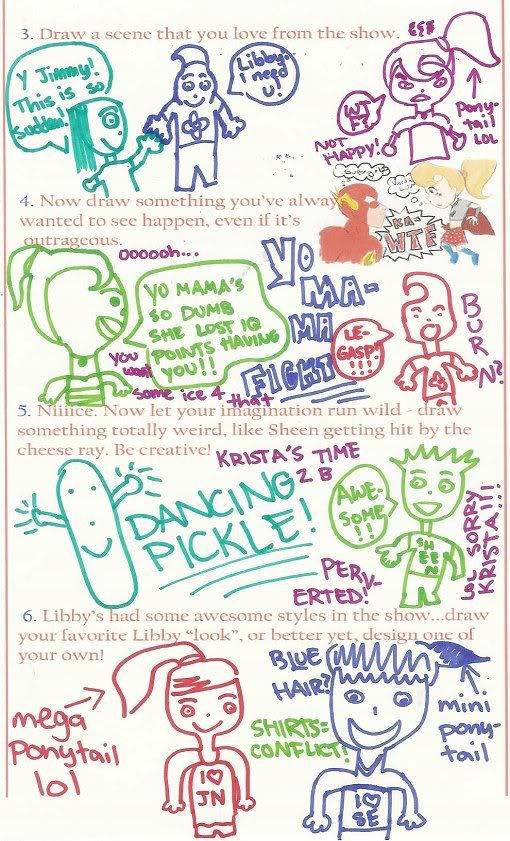 3. Draw a scene that you love from the show.
Y Jimmy!
This is so
sudden!
Libby-
I need
U!
WTF?!
NOT
HAPPY!
Pony-
tail
LOL
4. Now draw something you've alway
wanted to see happen, even if it's
outrageous.
KA-
WTF
oooooh...
YO MAMA'S
SO DUMB
SHE LOST IQ
POINTS HAVING
YOU!!
you
want
some ice 4 that
YO
MA-
MA
FIGHT!!!
LE-
GASP!
!!!
BURN?
5. Niiiice. Now let your imagination run wild - draw
something totally weird, like Sheen getting hit by the
cheese ray. Be creative!
KRISTA'S TIME
2 B
PERV-
ERTED!
DANCING
PICKLE!
AWE-
SOME
!!
SHEEN
LOL SORRY
KRISTA!!!
6. Libby's had some awesome styles in the show...draw
your favorite Libby "look", or better yet, design one of
your own!
mega
Ponytail
lol
I ♡
JN
BLUE
HAIR?
SHIRTS=
CONFLICT!
I ♡
SE
mini
pony-
tail